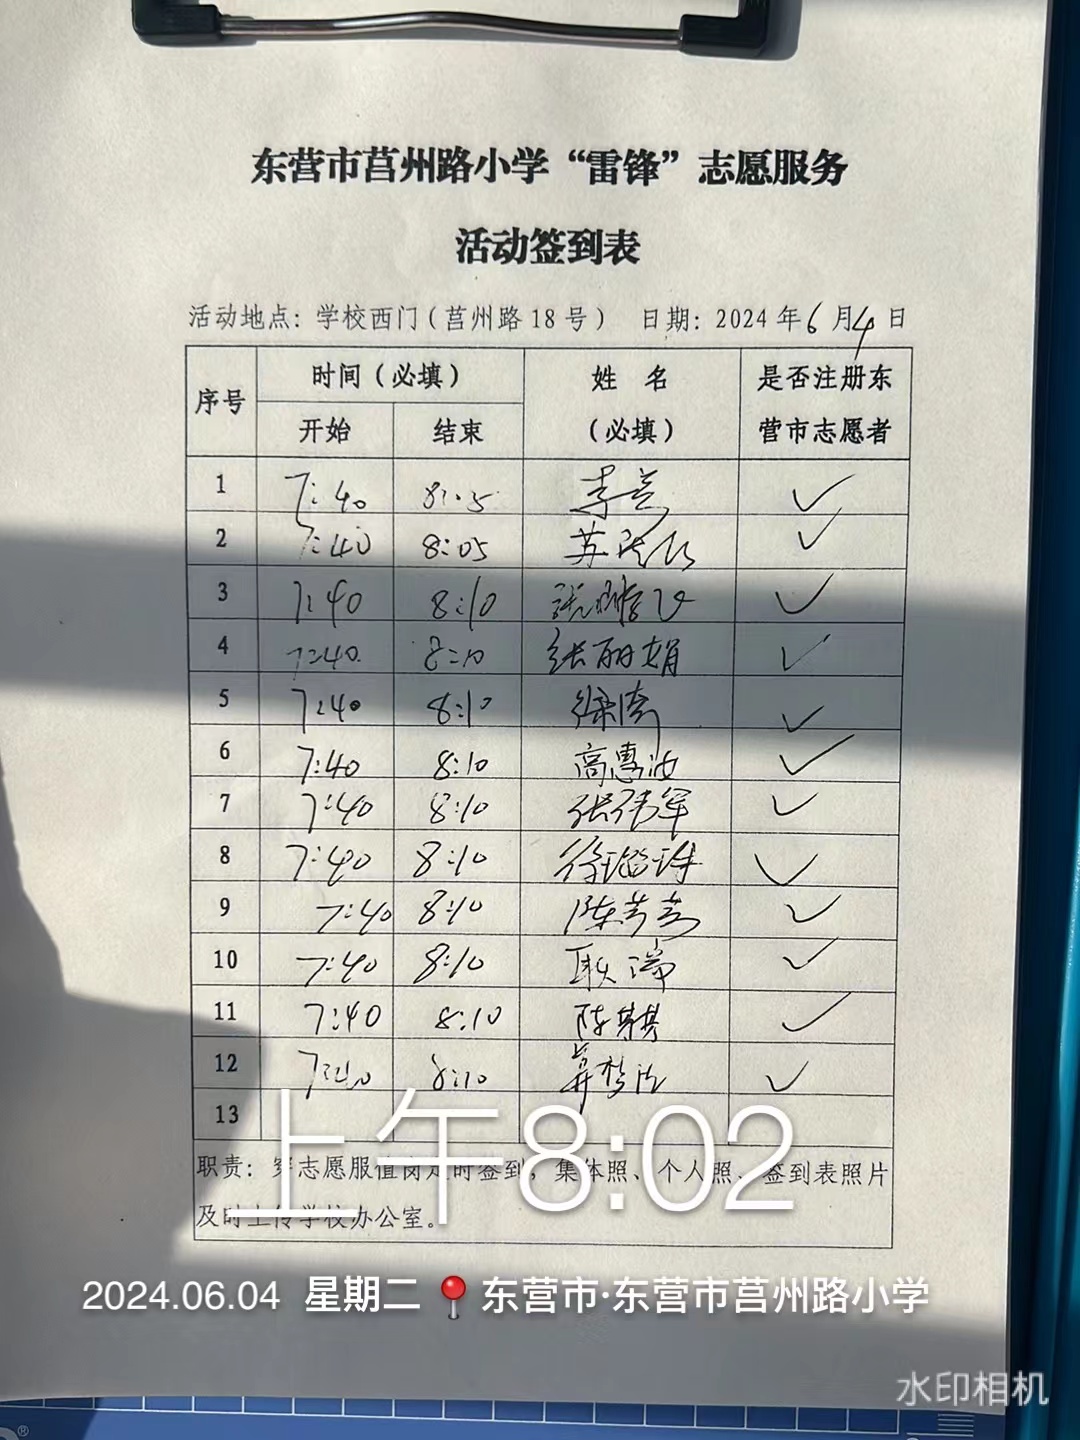 东营市莒州路小学“雷锋”志愿服务
活动签到表
活动地点：学校西门（莒州路18号） 日期：2024年6月4日
序号 时间（必填） 姓 名 是否注册东
开始 结束 （必填） 营市志愿者
1 7:40 8:05 李 ✓
2 7:40 8:05 苏 ✓
3 7:40 8:10 ✓
4 7:40 8:10 张丽娟 ✓
5 7:40 8:10 徐倩 ✓
6 7:40 8:10 高惠汝 ✓
7 7:40 8:10 张伟军 ✓
8 7:40 8:10 徐 ✓
9 7:40 8:10 陈芳芳 ✓
10 7:40 8:10 耿瑞 ✓
11 7:40 8:10 陈 ✓
12 7:40 8:10 ✓
13
上午8:02
职责：穿志愿服值岗定时签到，集体照、个人照、签到表照片
及时上传学校办公室。
2024.06.04 星期二 东营市·东营市莒州路小学
水印相机